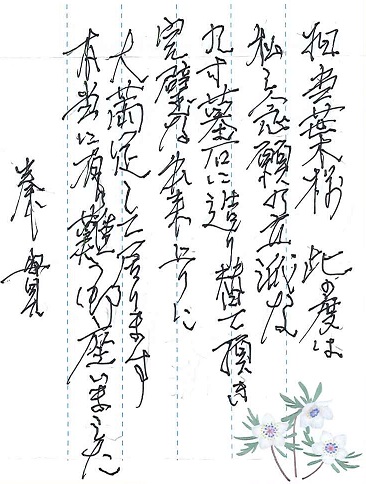 担当葉様 此の度は
私之念願の立派な
九寸墓石に造り替て頂き
完璧な出来上りに
大満足して居ります
本当に有り難う御座いました